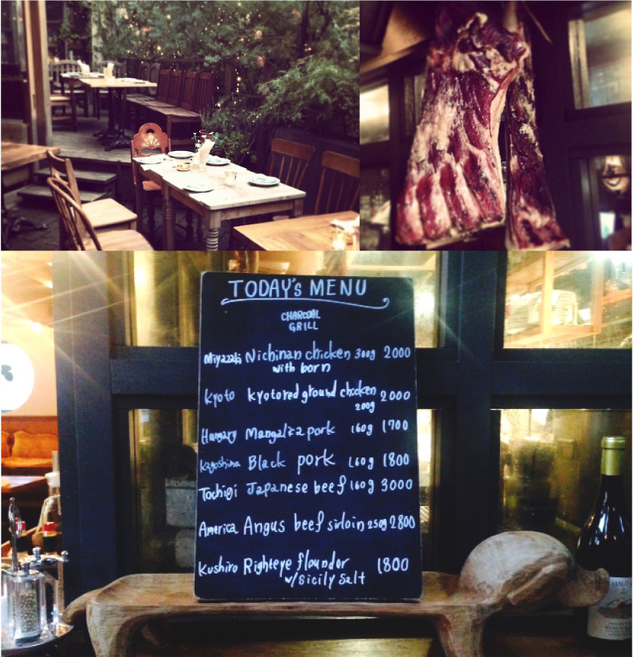 TODAY'S MENU
CHARCOAL
GRILL
Miyazaki Nichinan chicken 300g 2000
with born
Kyoto Kyotored ground chicken 2000
200g
Hungary Mangaliza pork 160g 1700
Kagoshima Black pork 160g 1800
Tochigi Japanese beef 160g 3000
America Angus beef sirloin 250g 2800
Kushiro Righteye flounder 1800
w/Sicily Salt